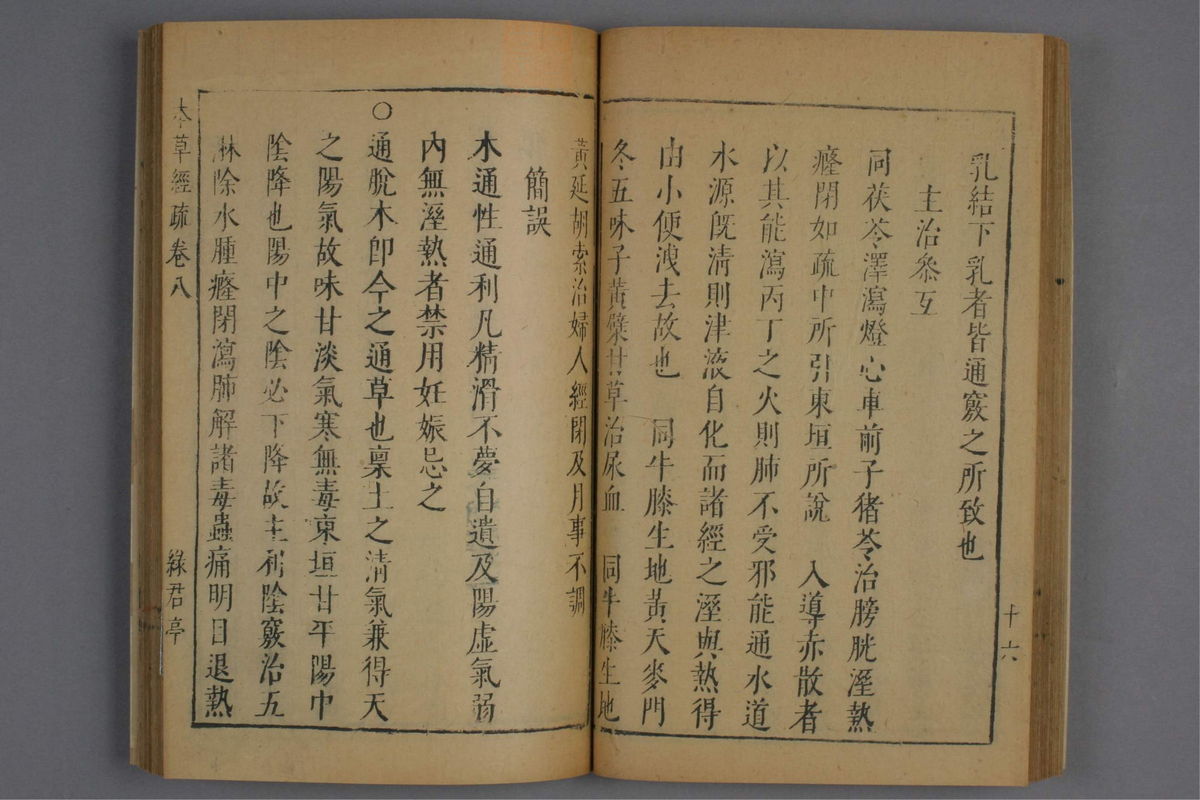 乳結下乳者皆通竅之所致也
主治叅互
同茯苓澤瀉燈心車前子猪苓治膀胱溼熱
癃閉如疏中所引東垣所說　入導赤散者
以其能瀉丙丁之火則肺不受邪能通水道
水源旣清則津液自化而諸經之溼與熱得
由小便洩去故也　同牛膝生地黃天麥門
冬五味子黃檗甘草治尿血　同牛膝生地
十六
黃延胡索治婦人經閉及月事不調
簡誤
木通性通利凡精滑不夢自遺及陽虛氣弱
內無溼熱者禁用妊娠忌之
○通脫木卽今之通草也稟土之清氣兼得天
之陽氣故味甘淡氣寒無毒東垣甘平陽中
陰降也陽中之陰必下降故主利陰竅治五
淋除水腫癃閉瀉肺解諸毒蟲痛明目退熱
本草經疏卷八
綠君亭